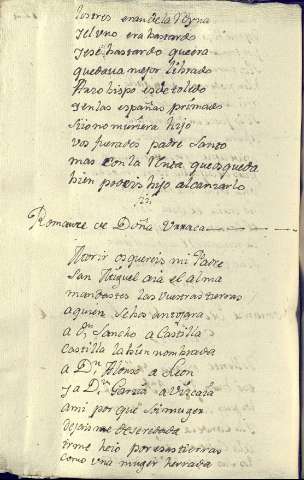 los tres eran de la Reyna
y el uno era bastardo
y ese bastardo que era
quedava mejor librado
Arzobispo es de toledo
y en las españas primado
Si yo no muriera hijo
vos fuerades padre Santo
mas con la renta que os queda
bien podeis hijo alcanzarlo
Romance de Doña Urraca
Morir os quereis mi Padre
San Miguel aia el alma
mandastes las vuestras tierras
a quien se hos antogara
a Dn. Sancho a Castilla
Castilla la bien nombrada
a Dn. Alonso a Leon
y a Dn. Garzia a Vizcaia
ami por que soi muger
dejaisme deseredada
irme he io por esas tierras
como una muger herrada